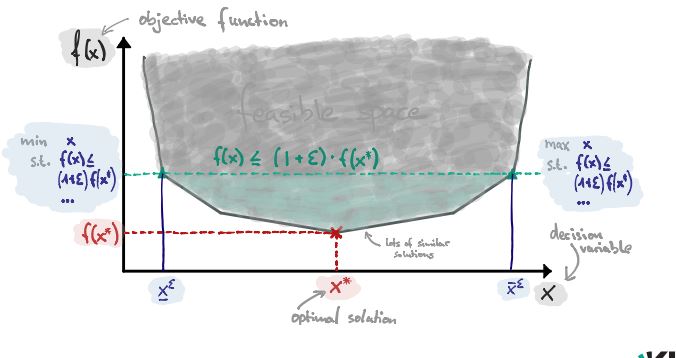 objective function
f(x)
feasible space
min x
s.t. f(x) ≤
(1+ε) f(x*)
...
f(x) ≤ (1+ε)·f(x*)
max x
s.t. f(x) ≤
(1+ε) f(x*)
...
f(x*)
lots of similar
solutions
decision
variable
x̲^ε
x*
x̄^ε
X
optimal solution